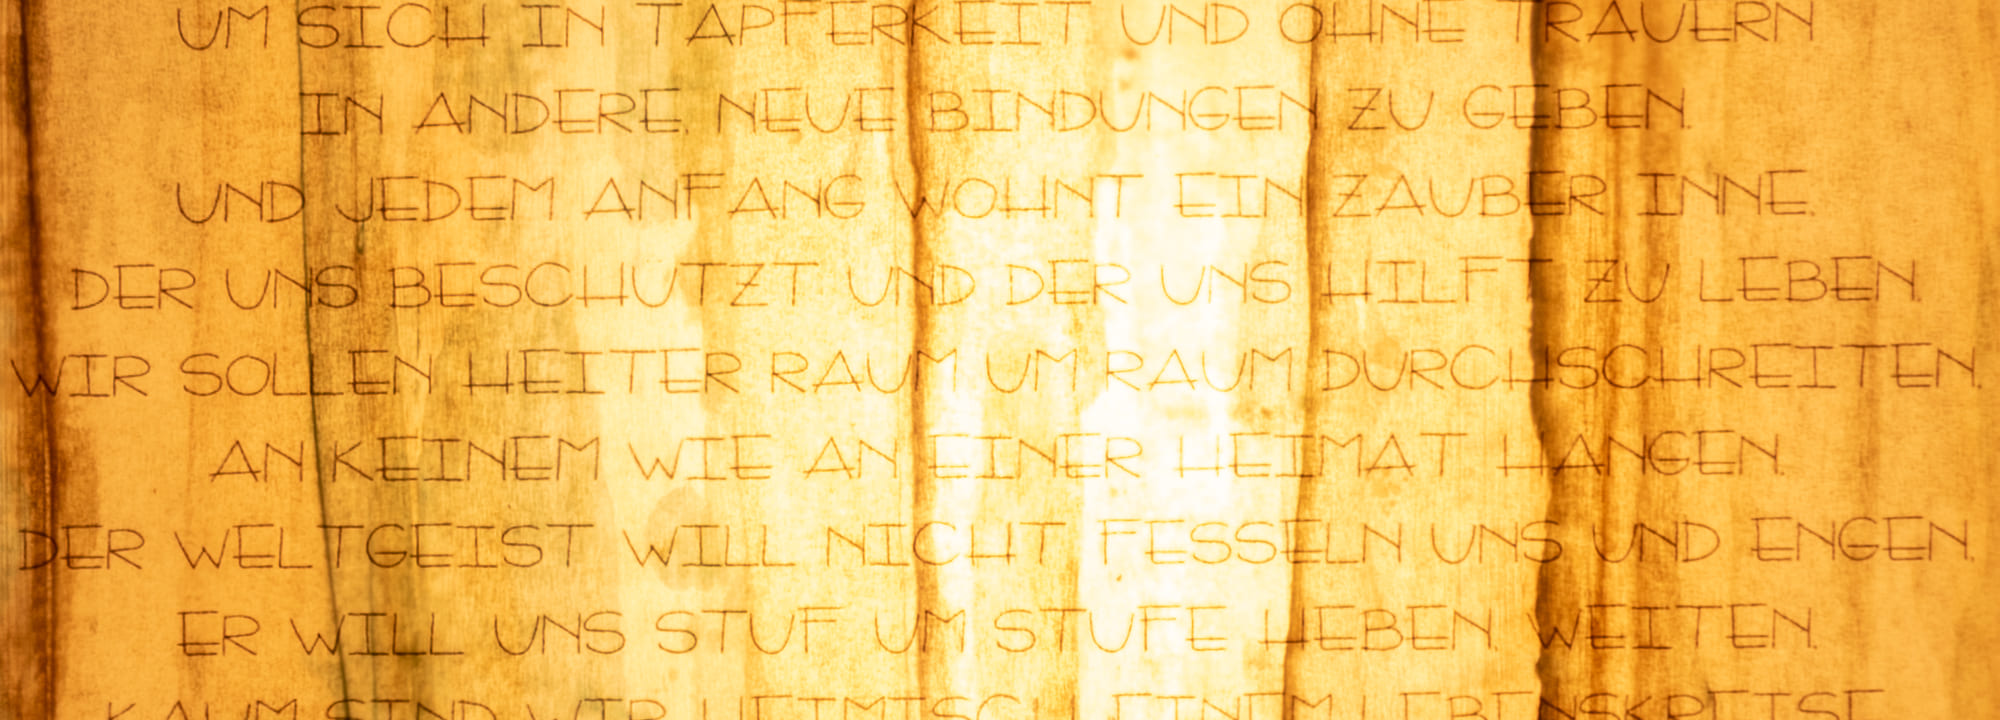 UM SICH IN TAPFERKEIT UND OHNE TRAUERN
IN ANDERE, NEUE BINDUNGEN ZU GEBEN.
UND JEDEM ANFANG WOHNT EIN ZAUBER INNE,
DER UNS BESCHUTZT UND DER UNS HILFT ZU LEBEN.
WIR SOLLEN HEITER RAUM UM RAUM DURCHSCHREITEN,
AN KEINEM WIE AN EINER HEIMAT HANGEN,
DER WELTGEIST WILL NICHT FESSELN UNS UND ENGEN,
ER WILL UNS STUF UM STUFE HEBEN, WEITEN.
KAUM SIND WIR HEIMISCH EINEM LEBENSKREISE